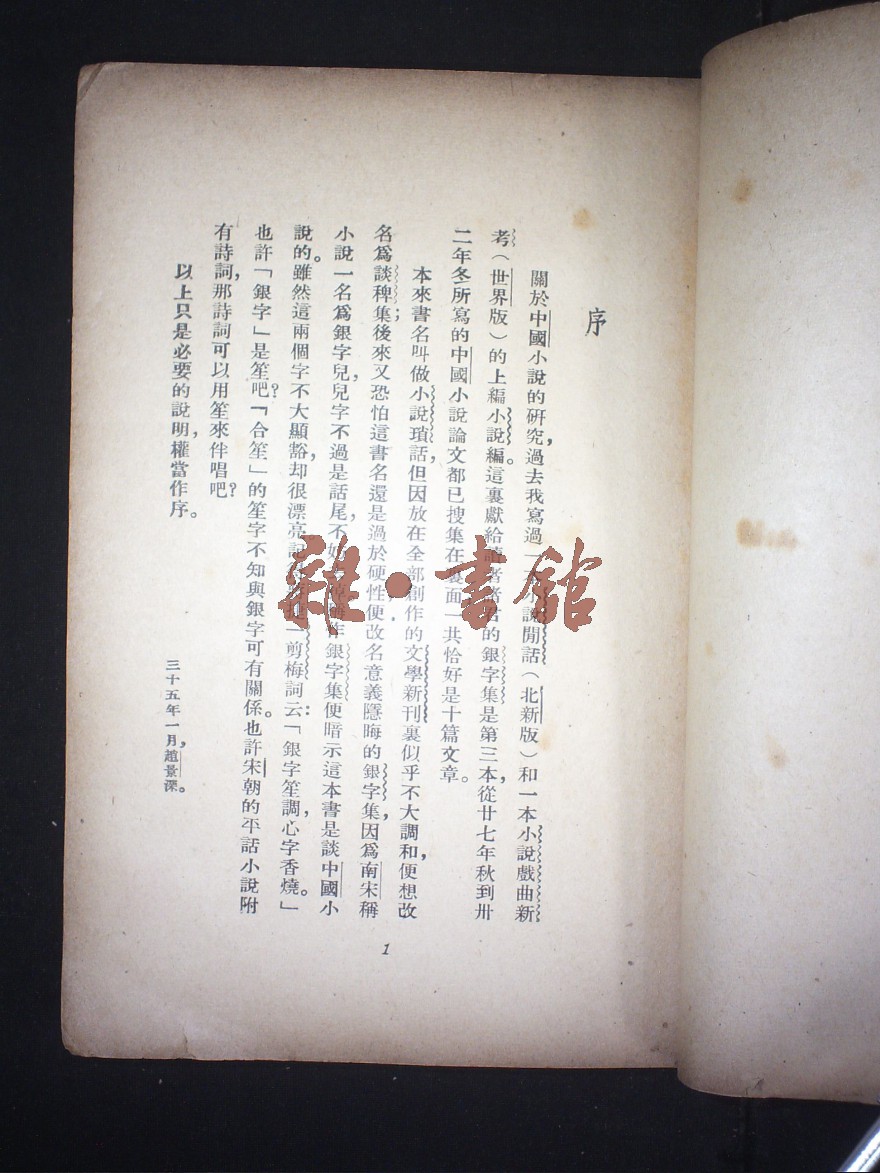 序
關於中國小說的研究，過去我寫過一 小說閒話（北新版）和一本小說戲曲新
考（世界版）的上編小說編。這裏獻給讀者諸君的銀字集是第三本，從廿七年秋到卅
二年冬所寫的中國小說論文都已搜集在裏面一共恰好是十篇文章。
本來書名叫做小說瑣話，但因放在全部創作的文學新刊裏似乎不大調和，便想改
名為談稗集；後來又恐怕這書名還是過於硬性，便改名意義隱晦的銀字集，因為南宋稱
小說一名為銀字兒，兒字不過是話尾，不 作銀字集便暗示這本書是談中國小
說的。雖然這兩個字不大顯豁，却很漂亮，記 捷一剪梅詞云：「銀字笙調，心字香燒。」
也許「銀字」是笙吧？「合笙」的笙字不知與銀字可有關係。也許宋朝的平話小說附
有詩詞，那詩詞可以用笙來伴唱吧？
以上只是必要的說明，權當作序。
三十五年一月，趙景深。
1
雜·書館